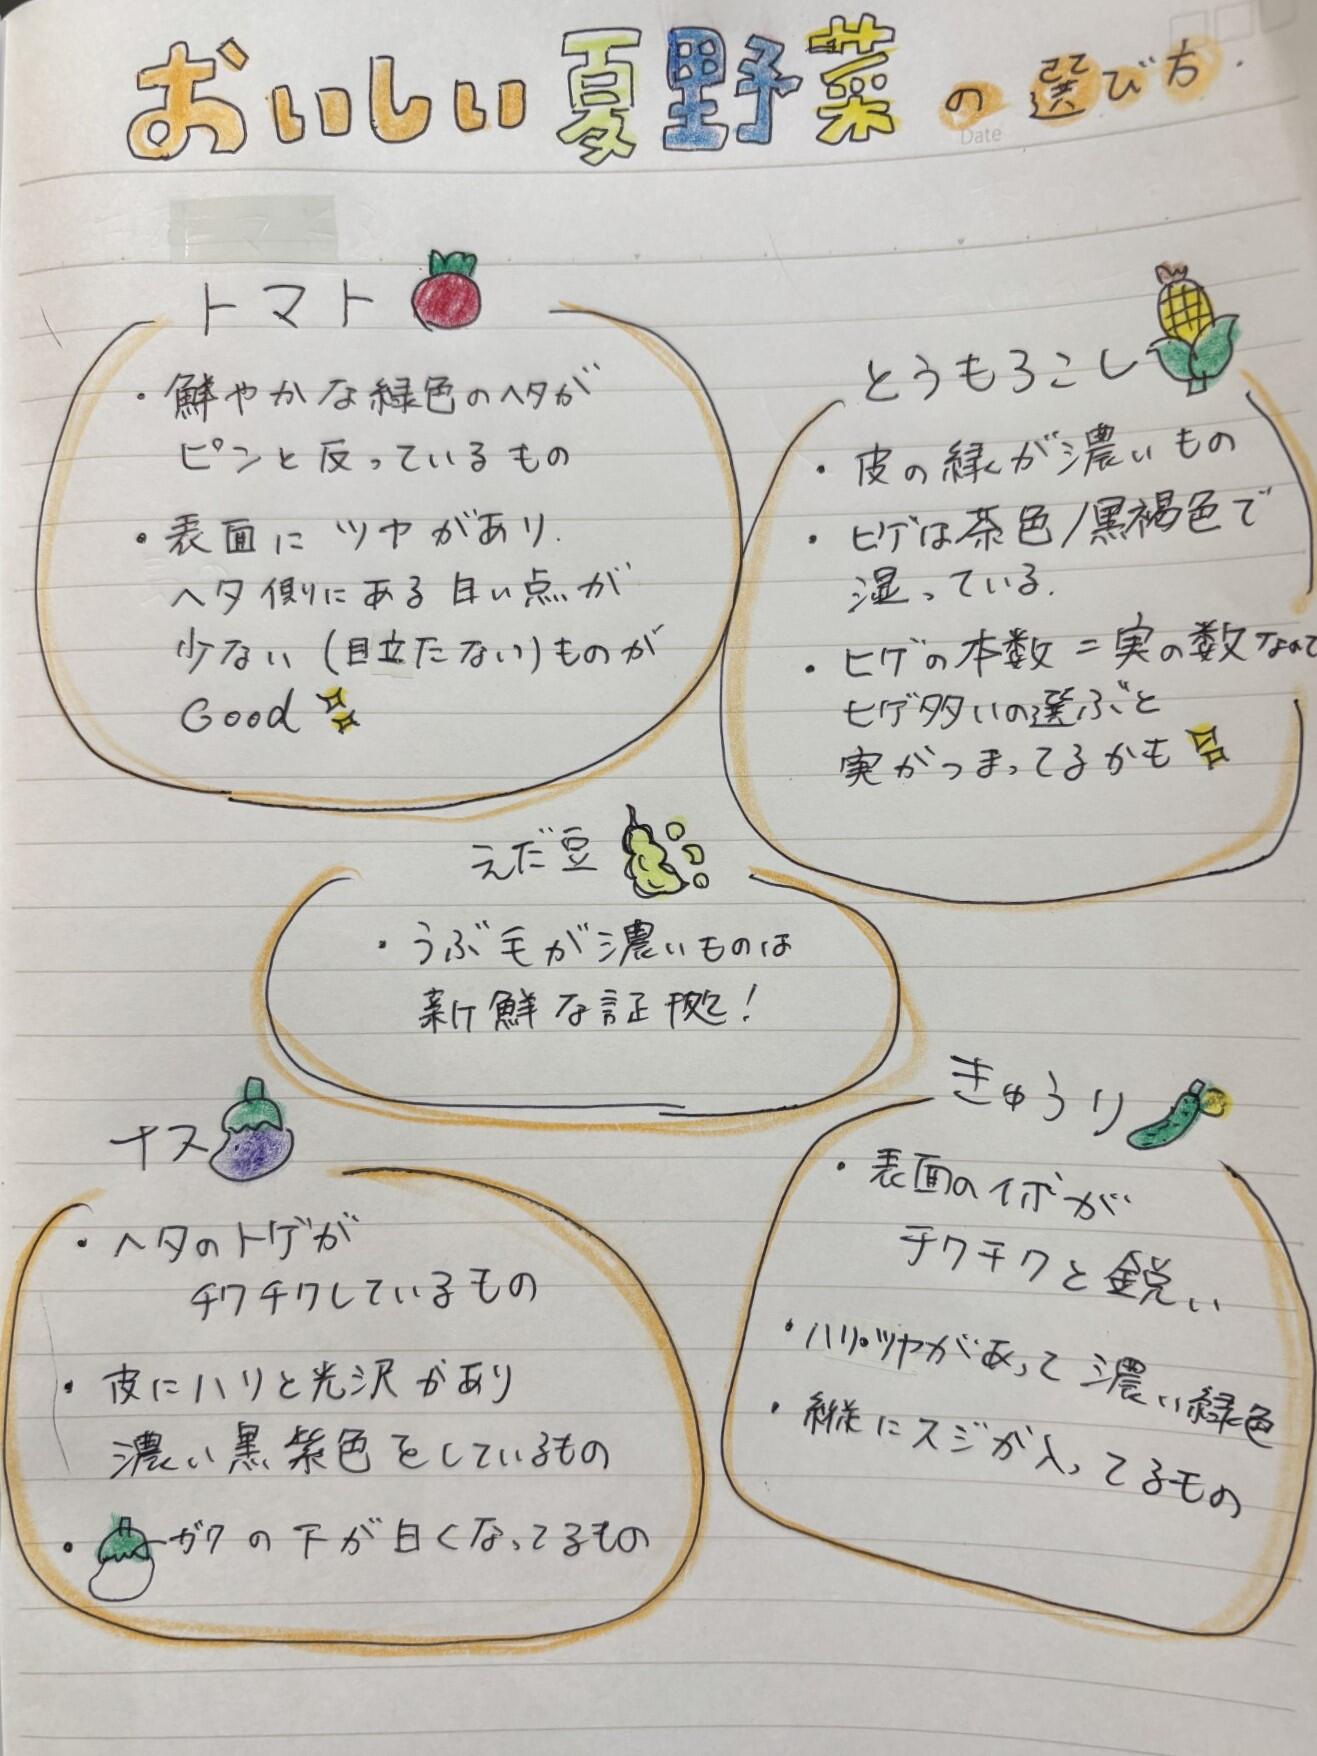 おいしい夏野菜の選び方.
Date
トマト
・鮮やかな緑色のヘタが
ピンと反っているもの
・表面にツヤがあり.
ヘタ側にある白い点が
少ない(目立たない)ものが
Good
とうもろこし
・皮の緑が濃いもの
・ヒゲは茶色/黒褐色で
湿っている.
・ヒゲの本数=実の数なので
ヒゲ多いの選ぶと
実がつまってるかも
えだ豆
・うぶ毛が濃いものは
新鮮な証拠!
ナス
・ヘタのトゲが
チクチクしているもの
・皮にハリと光沢があり
濃い黒紫色をしているもの
・ガクの下が白くなってるもの
きゅうり
・表面のイボが
チクチクと鋭い
・ハリ・ツヤがあって濃い緑色
・縦にスジが入ってるもの